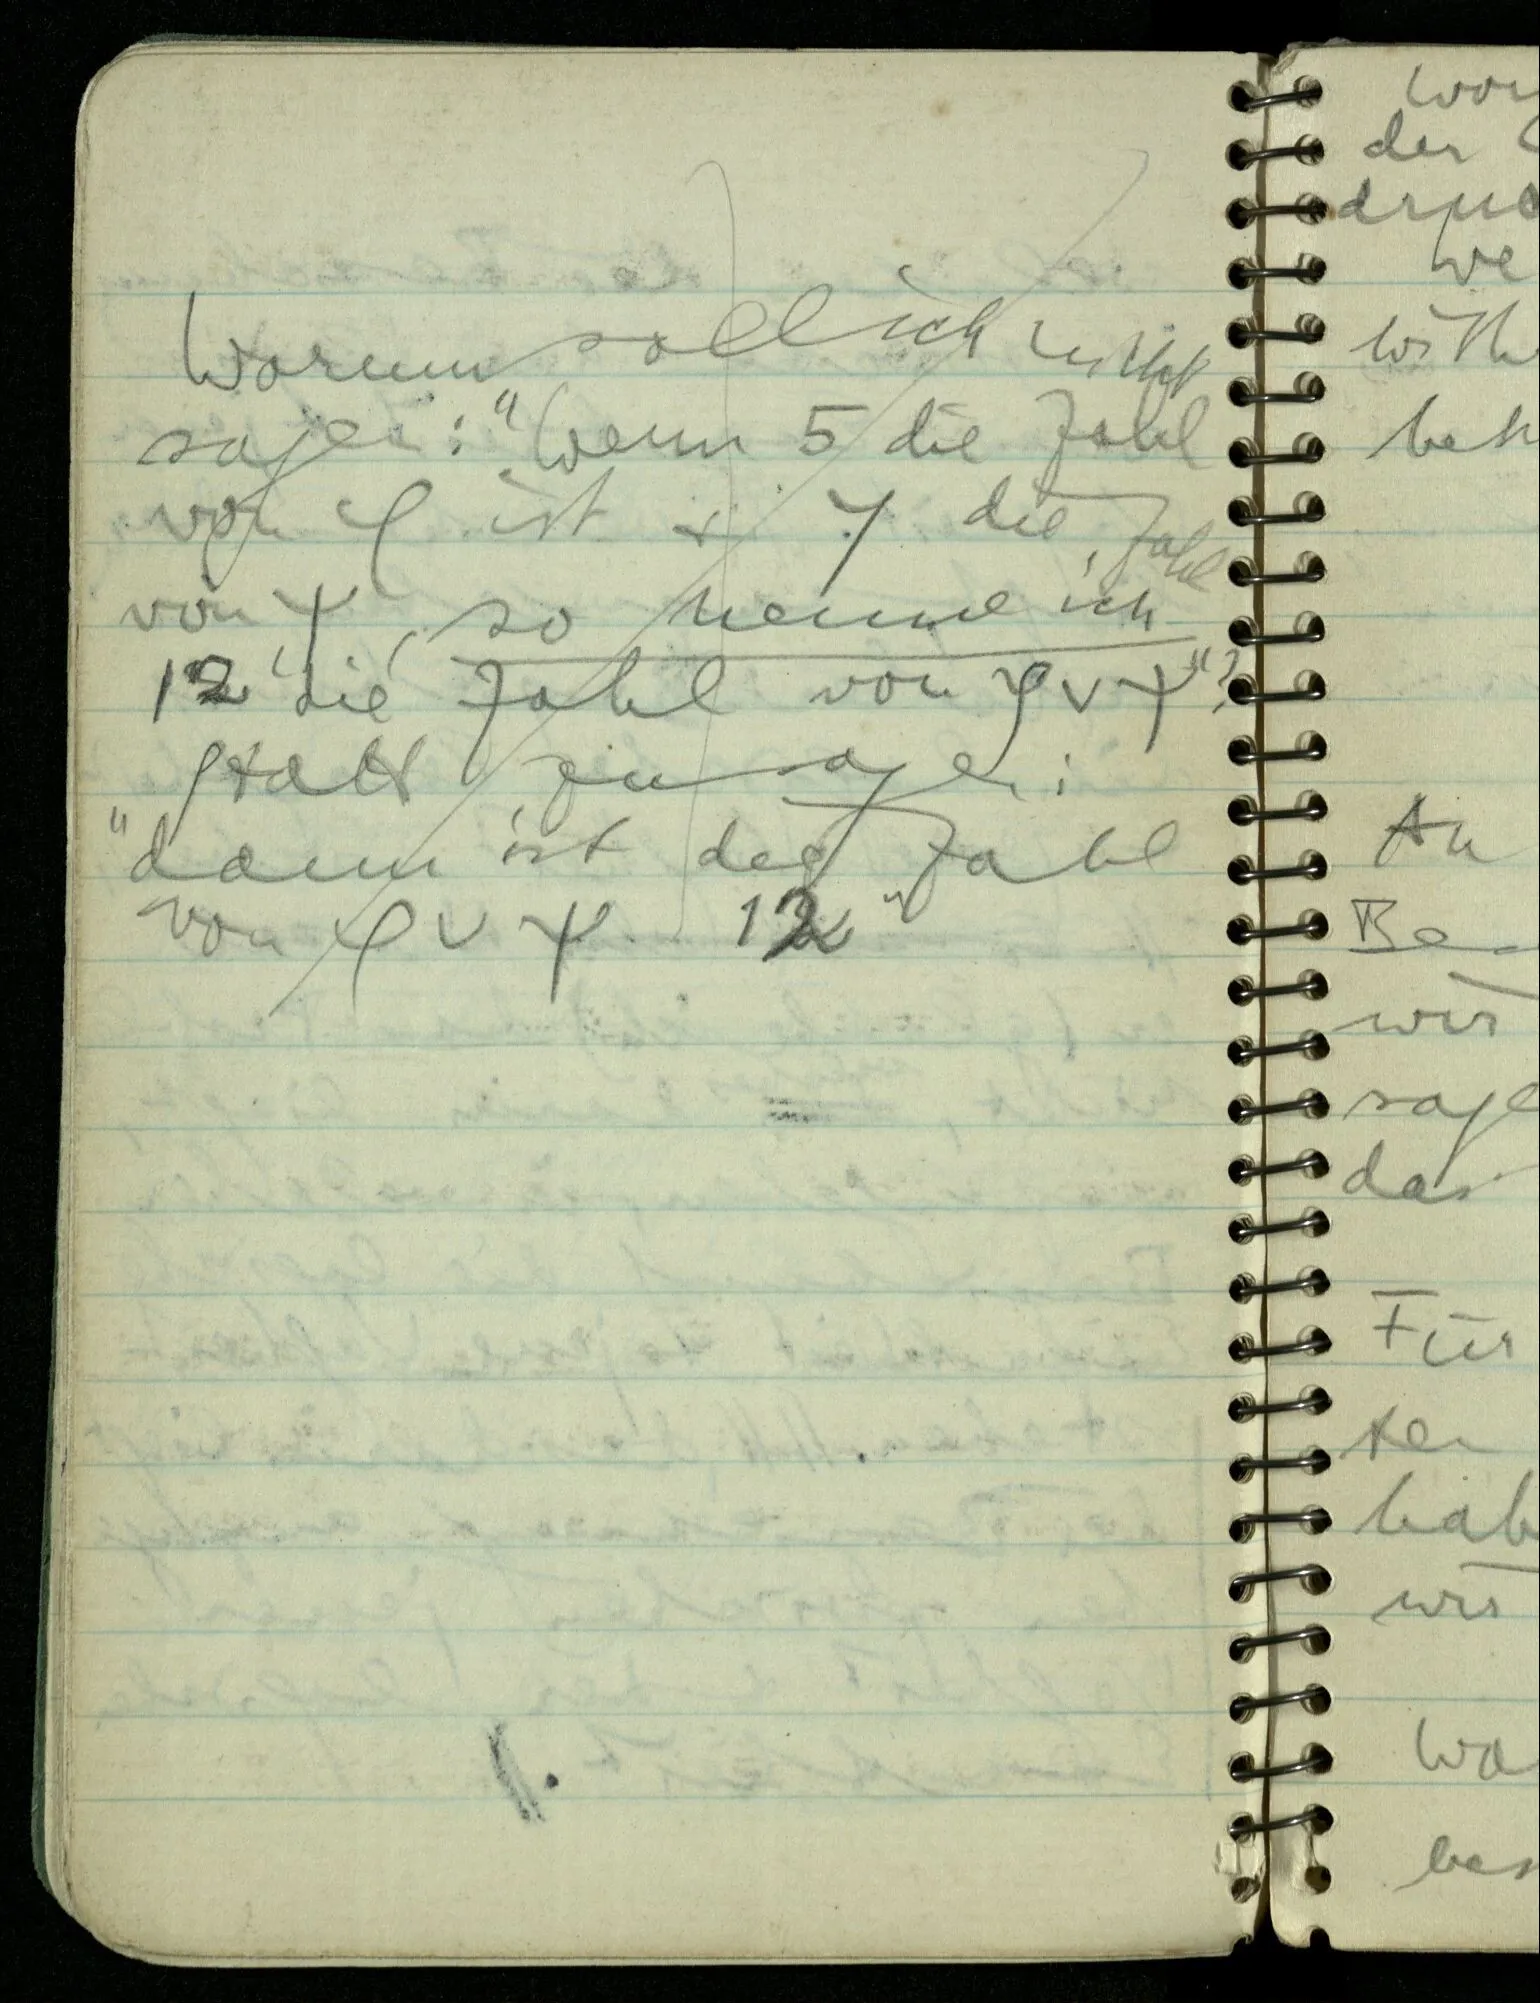 Warum soll ich nicht
sagen: "Wenn 5 die Zahl
von φ ist & 7 die Zahl
von ψ, so nenne ich
12 'die Zahl von φ ∨ ψ'"?
statt zu sagen:
"dann ist die Zahl
von φ ∨ ψ 12"
der
we
An
wir
sage
das
Für
ten
hab
wir